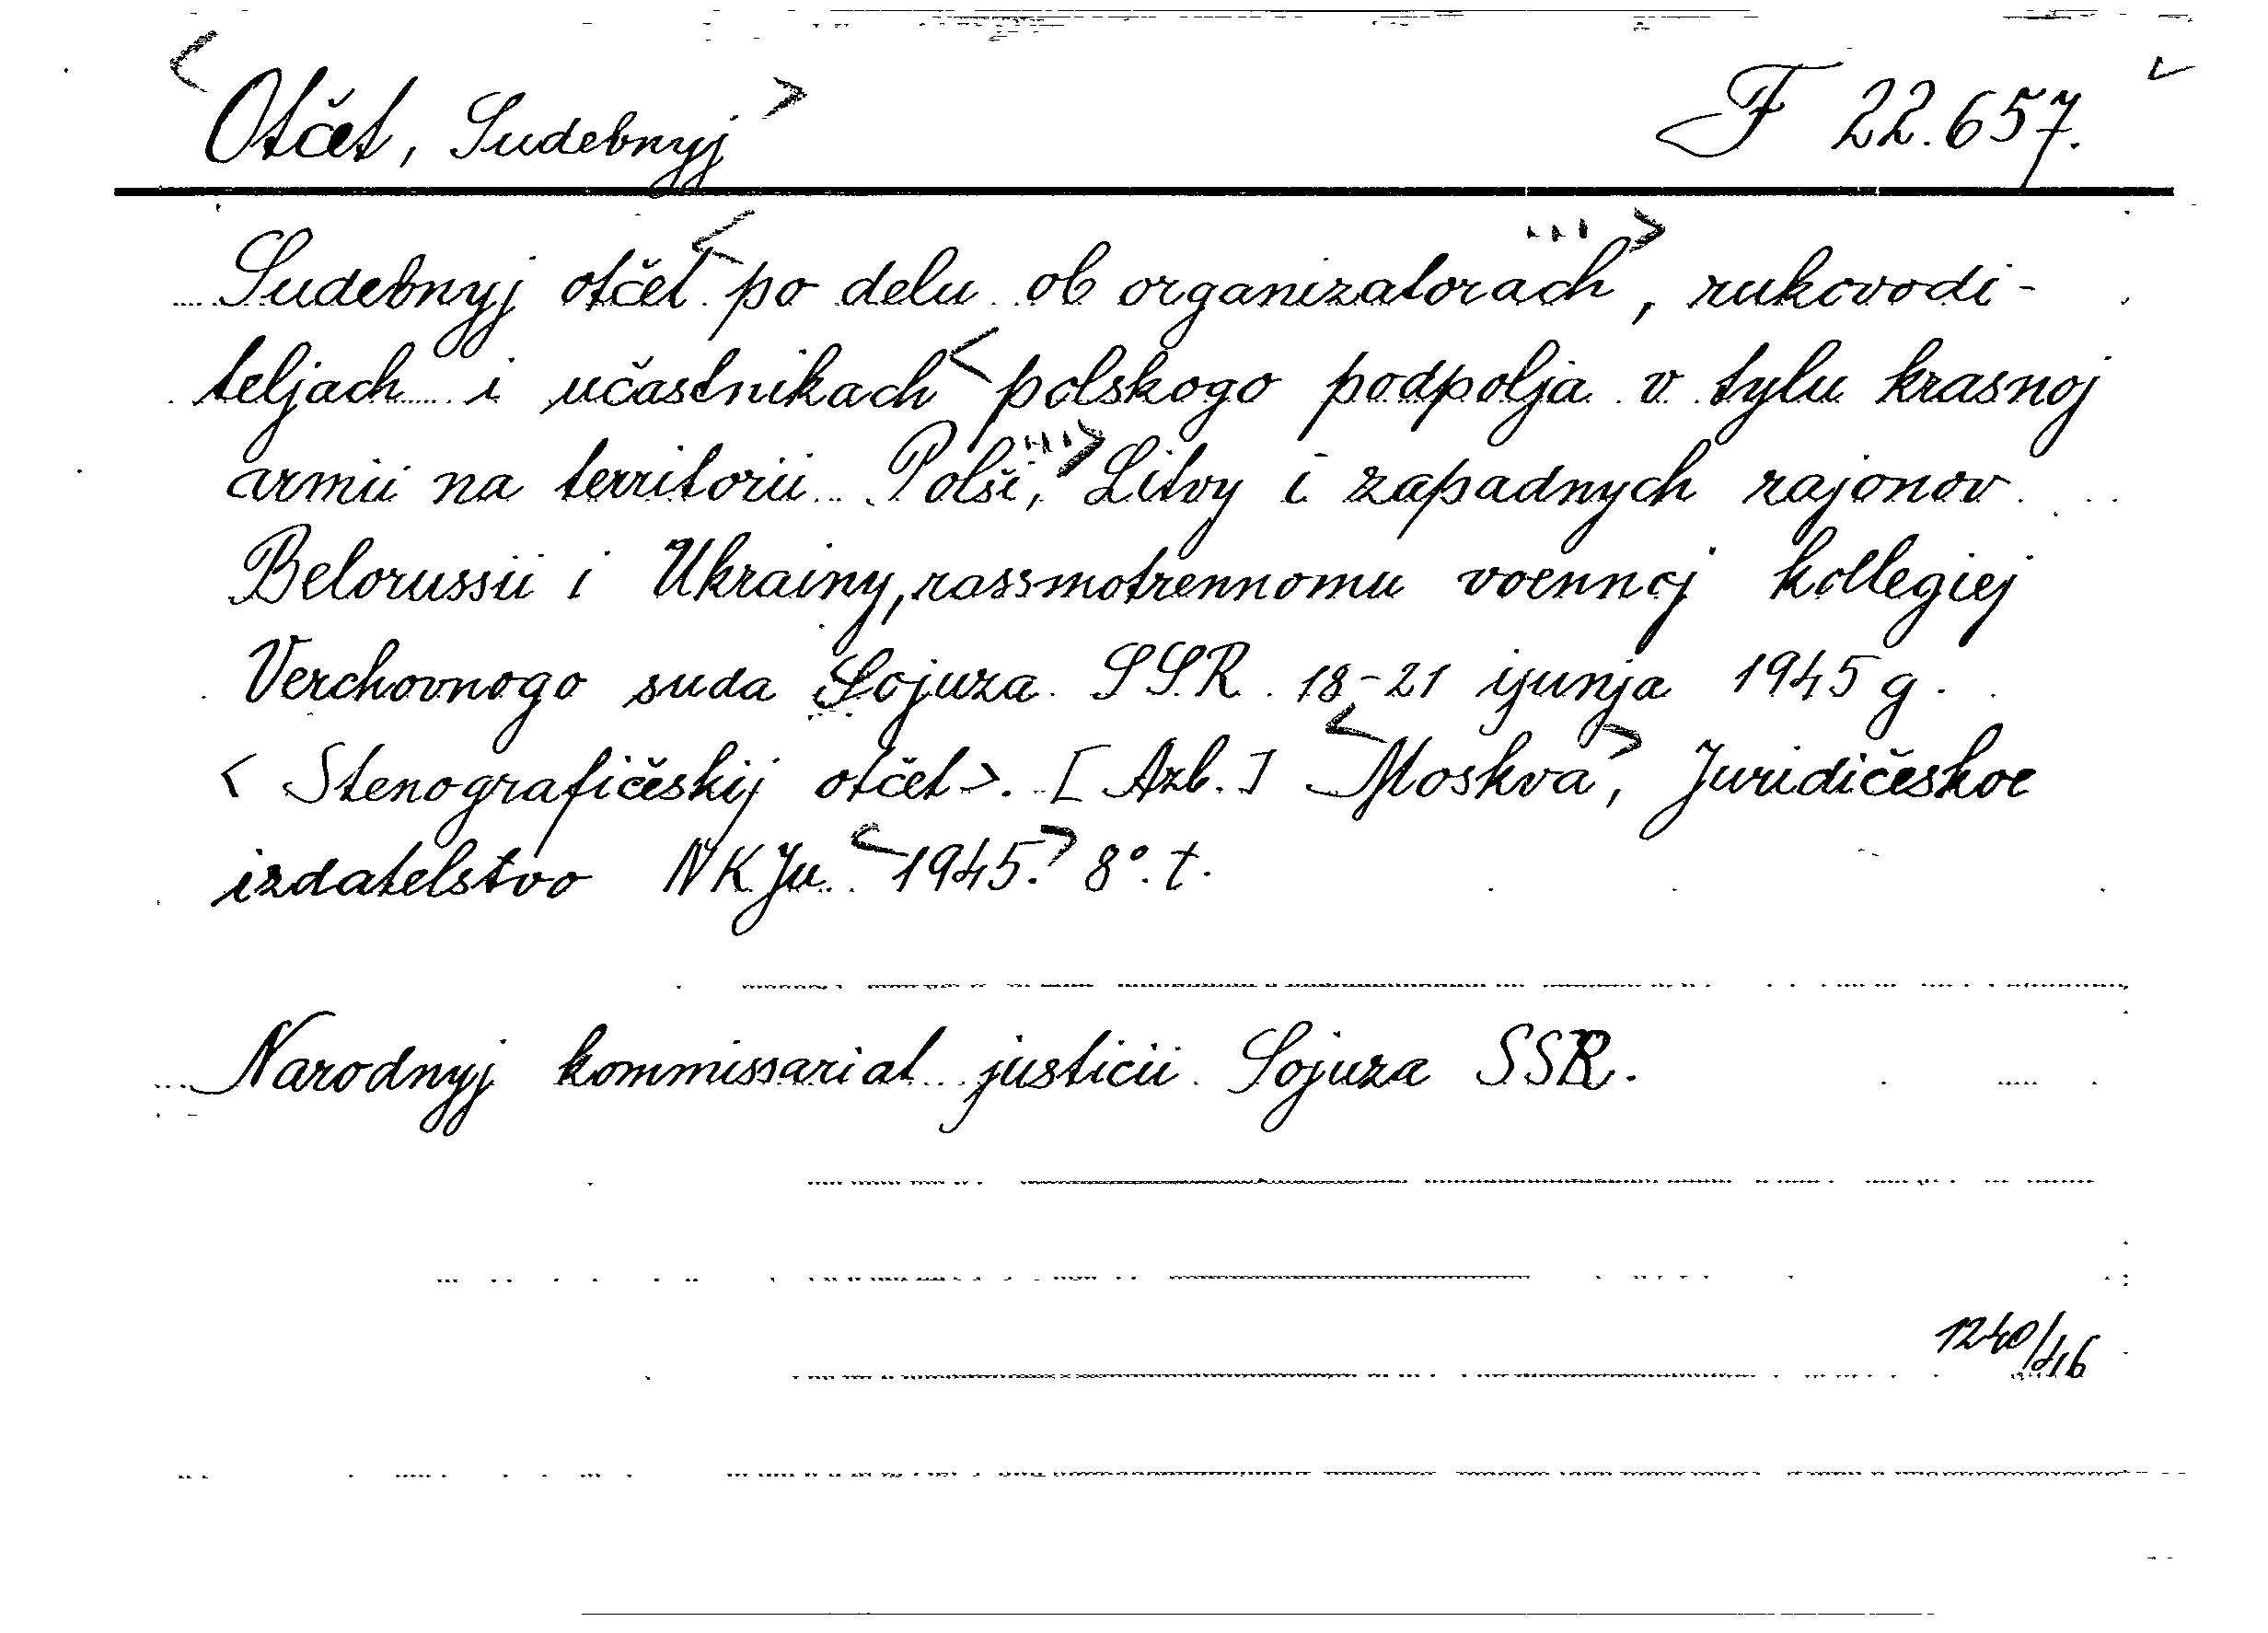 <Otčet, Sudebnyj> F 22.657.
Sudebnyj otčet <po delu ob organizatorach ...>, rukovodi-
teljach i učastnikach <polskogo podpolja v tylu krasnoj
armii na territorii Polši, ...> Litvy i zapadnych rajonov
Belorussii i Ukrainy, rassmotrennomu voennoj kollegiej
Verchovnogo suda Sojuza SSR 18-21 ijunja 1945 g.
< Stenografičeskij otčet>. [Azb.] <Moskva>, Juridičeskoe
izdatelstvo NKJu <1945.> 8°. t.
Narodnyj kommissariat justicii Sojuza SSR.
1240/46